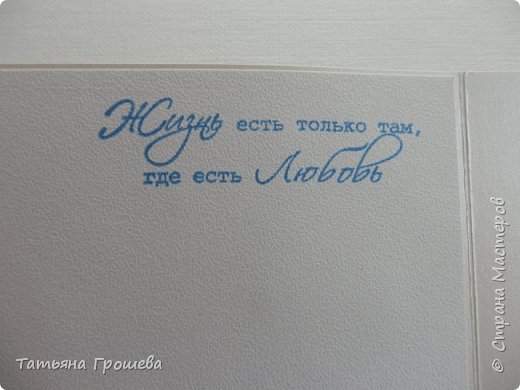 Жизнь есть только там,
где есть Любовь
© Страна Мастеров
Татьяна Грошева